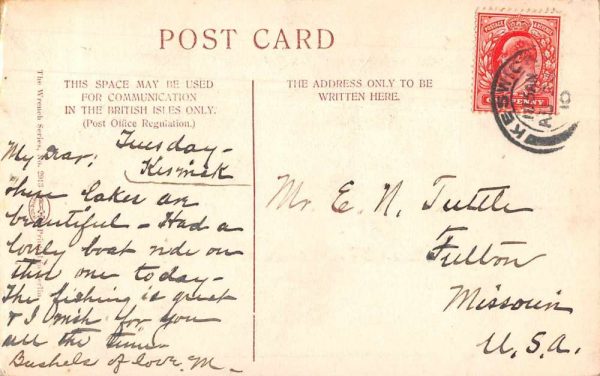 POST CARD
THIS SPACE MAY BE USED
FOR COMMUNICATION
IN THE BRITISH ISLES ONLY.
(Post Office Regulation.)
THE ADDRESS ONLY TO BE
WRITTEN HERE.
The Wrench Series, No.
Tuesday-
Keswick
My Dear;
These lakes are
beautiful - Had a
lovely boat ride on
this one today -
The fishing is great
& I wish for you
all the time
Bushels of love. M-
Mr. E. N. Tuttle
Fulton
Missouri
U.S.A.
POSTAGE
ONE PENNY
KESWICK
10